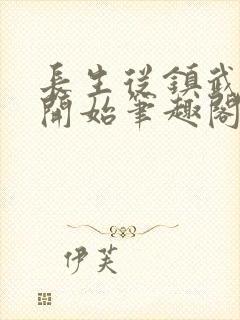 長生從鎮武
開始筆趣閣
伊芙